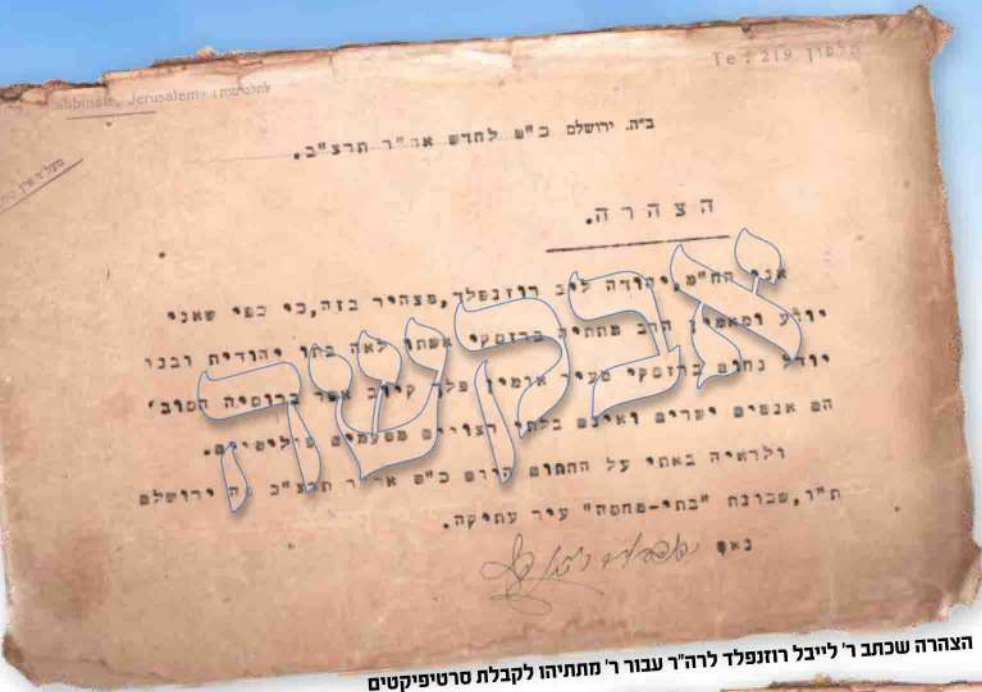 Jerusalem לתלגרמות:
219 טלפון
ב"ה. ירושלם כ"ט לחדש אד"ר תרצ"ב.
הצהרה.
אני הח"מ,יהודה ליב רוזנפלד,מצהיר בזה,כי כפי שאני
יודע ומאמין הרב מתתיה ברזסקי אשתו לאה בתו יהודית ובנו
יודל נחום ברזסקי מעיר אומין פלך קיוב אשר ברוסיה הסוב'
הם אנשים ישרים ואינם בלתי רצויים מטעמים פוליטיים.
ולראיה באתי על החתום היום כ"ט אד"ר תרצ"ב פה ירושלם
ת"ו,שכונת "בתי-מחסה" עיר עתיקה.
נאם
אבקשך
הצהרה שכתב ר' לייבל רוזנפלד לרה"ר עבור ר' מתתיהו לקבלת סרטיפיקטים